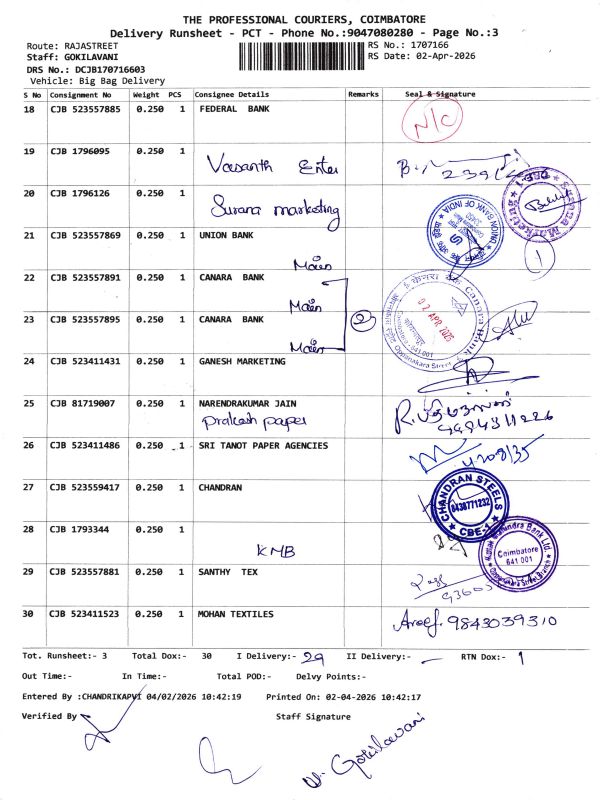 THE PROFESSIONAL COURIERS, COIMBATORE
Delivery Runsheet - PCT - Phone No.:9047080280 - Page No.:3
Route: RAJASTREET
Staff: GOKILAVANI
DRS No.: DCJB170716603
Vehicle: Big Bag Delivery
RS No.: 1707166
RS Date: 02-Apr-2026
S No Consignment No Weight PCS Consignee Details Remarks Seal & Signature
18 CJB 523557885 0.250 1 FEDERAL BANK N/C
19 CJB 1796095 0.250 1
Vasanth Enter
20 CJB 1796126 0.250 1
Surana marketing
21 CJB 523557869 0.250 1 UNION BANK
Main
1
22 CJB 523557891 0.250 1 CANARA BANK
Main
2
02 APR
23 CJB 523557895 0.250 1 CANARA BANK
Main
Canara Bank
Oppanakara Street
641 001
24 CJB 523411431 0.250 1 GANESH MARKETING
25 CJB 81719007 0.250 1 NARENDRAKUMAR JAIN
prakash paper
26 CJB 523411486 0.250 1 SRI TANOT PAPER AGENCIES
27 CJB 523559417 0.250 1 CHANDRAN
CHANDRAN STEELS
8438771232
CBE-1
28 CJB 1793344 0.250 1
KMB
Kotak Mahindra Bank Ltd.
Coimbatore
641 001
Oppanakara Street Branch
29 CJB 523557881 0.250 1 SANTHY TEX
30 CJB 523411523 0.250 1 MOHAN TEXTILES
9843039310
Tot. Runsheet:- 3 Total Dox:- 30 I Delivery:- 29 II Delivery:- — RTN Dox:- 1
Out Time:- In Time:- Total POD:- Delvy Points:-
Entered By :CHANDRIKAPVI 04/02/2026 10:42:19 Printed On: 02-04-2026 10:42:17
Verified By Staff Signature
Gokilavani